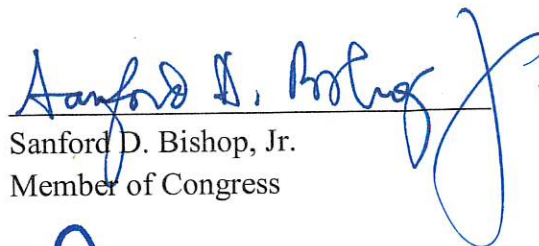 Sanford D. Bishop, Jr.
Sanford D. Bishop, Jr.
Member of Congress